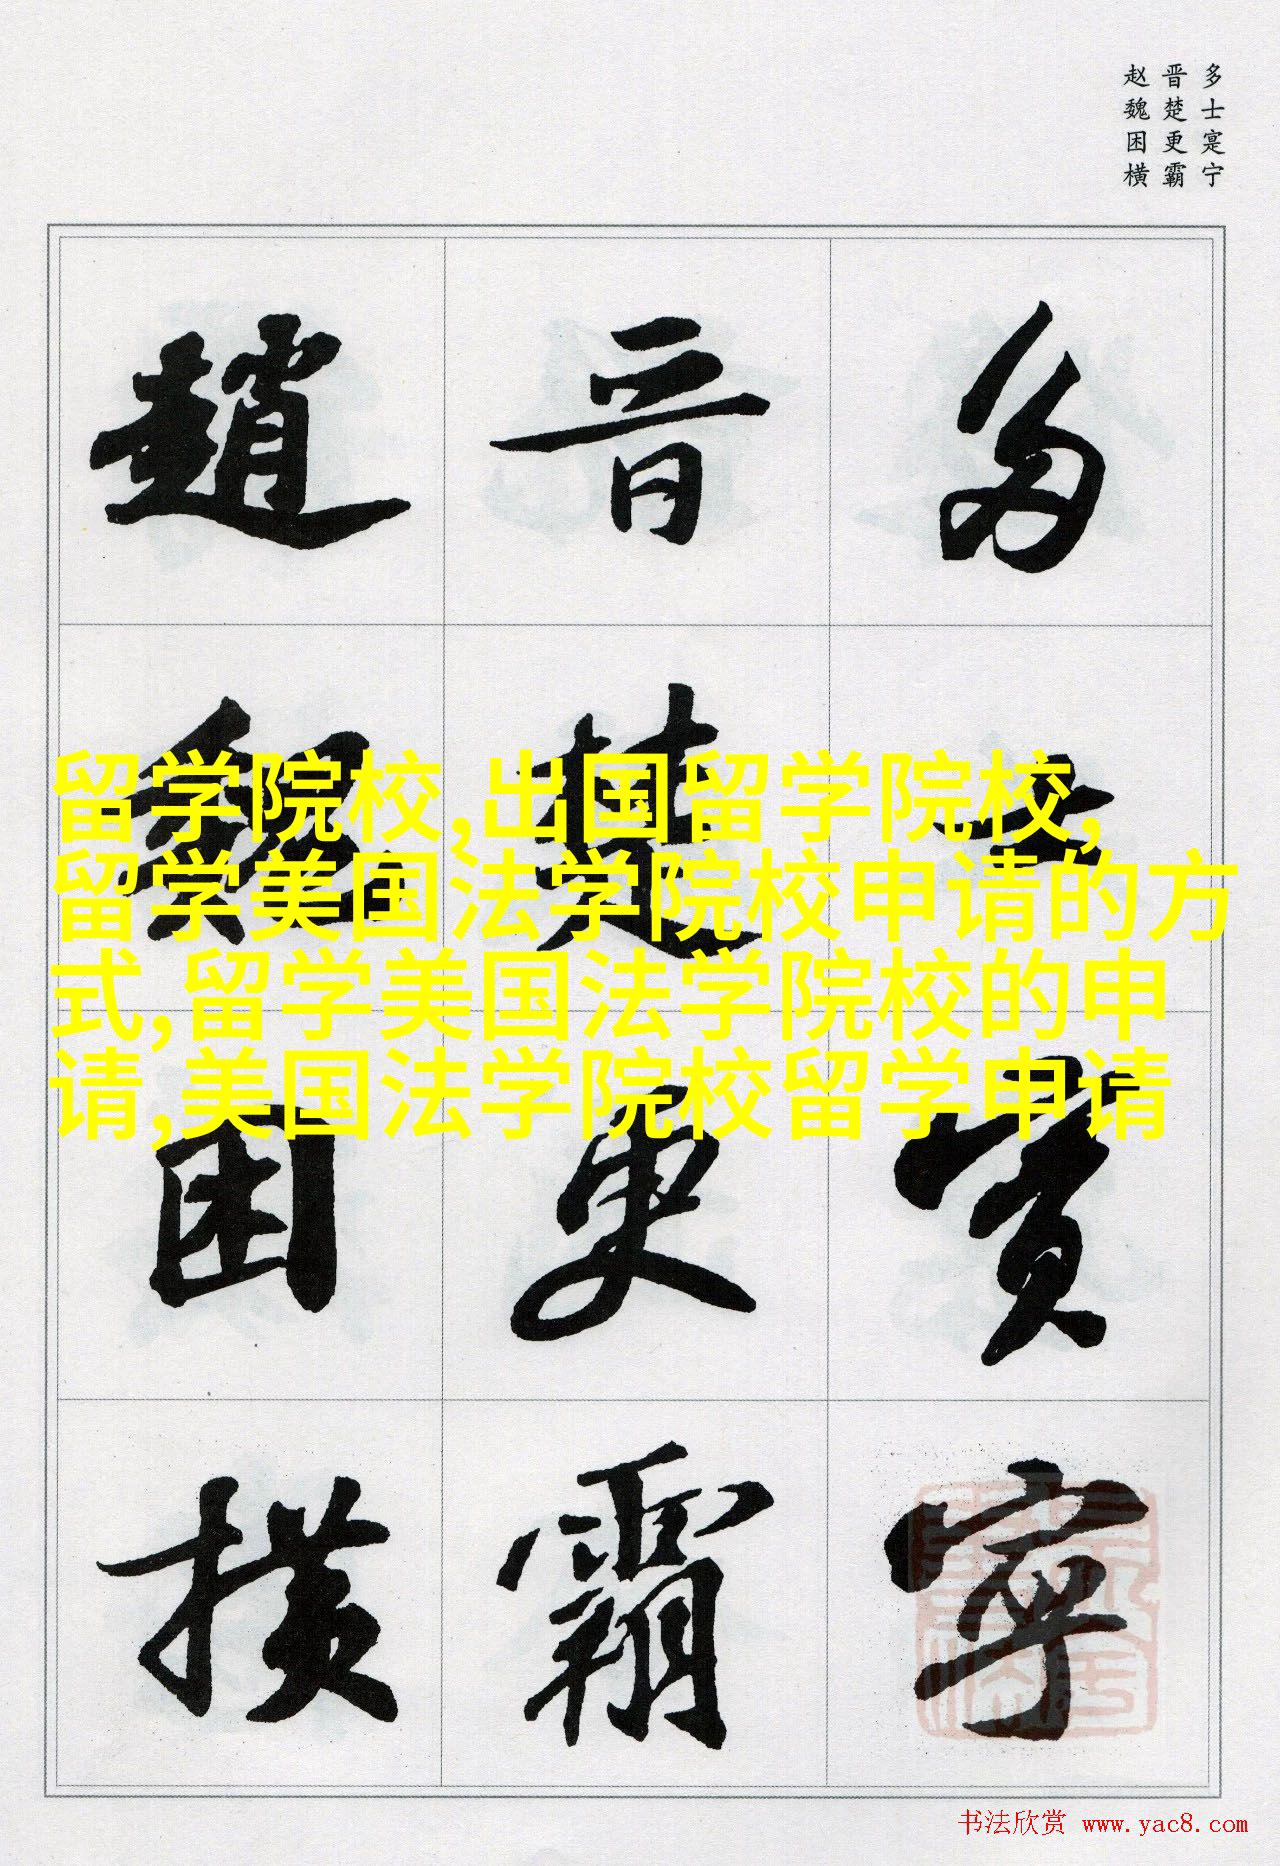 多士寔宁
晋楚更霸
赵魏困横
多士寔宁
晉楚更霸
趙魏困橫
留学院校,出国留学院校,
留学美国法学院校申请的方
式,留学美国法学院校的申
请,美国法学院校留学申请
书法欣赏 www.yac8.com